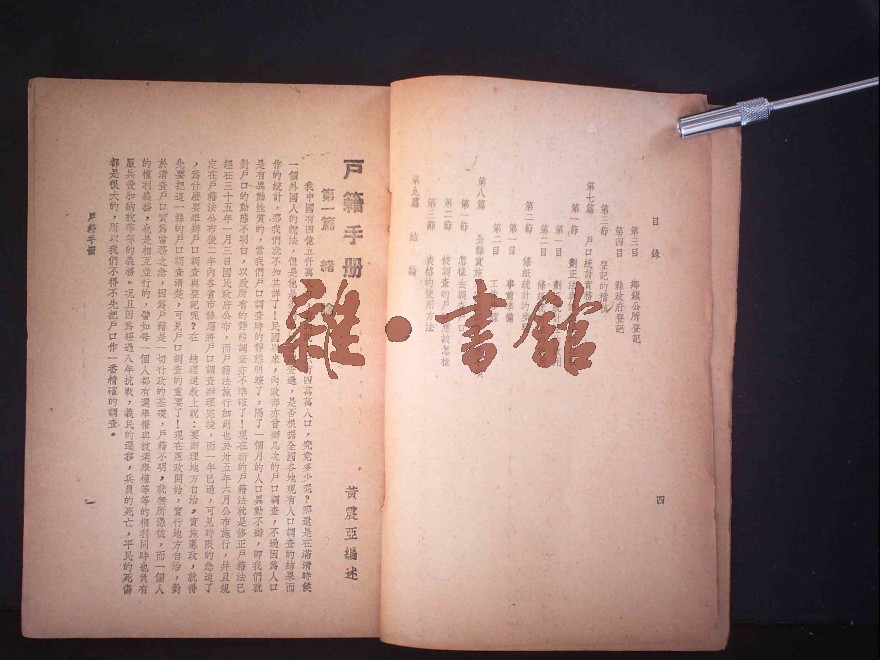 目錄
第三目 鄉鎮公所登記
第四目 縣政府登記
第三節 登記的
第七篇 戶口統計實務
第一節 劃正法
第一目
第二目 條紙
第二節 條紙統計的
第一目 事前準備
第二目 工作
第八篇 全縣實施
第一節 怎樣去調查戶口
第二節 被調查的戶應該怎樣
第三節 表格的使用方法
第九篇 結論
四
戶籍手冊
黃震亞編述
第一篇 緒論
我中國有四億五仟萬 有四萬萬人口，究竟多少呢？那還是在滿清時候
一個外國人的說法，但是他是 查過，是否根據全國各地現有人口調查的結果而
作的統計，那我們就不知其詳了！民國以來，內政部亦曾辦幾次的戶口調查，不過因為人口
是有異動性質的，當我們戶口調查時的靜態明瞭了，隔了一個月的人口異動不辦，即我們就
對戶口的動態不明白，以致所有的靜態調查亦不準確了！現在新的戶籍法就是修正戶籍法已
經在三十五年一月三日國民政府公布，而戶籍法施行細則也於卅五年六月公布施行，并且規
定在戶籍法公布後二年內各省市縣應將戶口調查辦理完竣，而一年已過，可見時限的急迫了
，為什麼要舉辦戶口調查與登記呢？在 地理遺教上說：要辦理地方自治。實施憲政，就得
先要把這一縣的戶口調查清楚，可見戶口調查的重要了！現在憲政開始，實行地方自治，對
於清查戶口實為當務之急，因為戶籍是一切行政的基礎，戶籍不明，就無所憑依，而一個人
的權利義務，也是相互並行的，譬如每一個人都有選舉權與被選舉權等等的權利同時也負有
服兵役和納稅等等的義務。況且因為經過八年抗戰，義民的遷移，兵員的死亡，平民的死傷
都是很大的，所以我們不得不先把戶口作一番精確的調查。
戶籍手冊
一
雜·書館